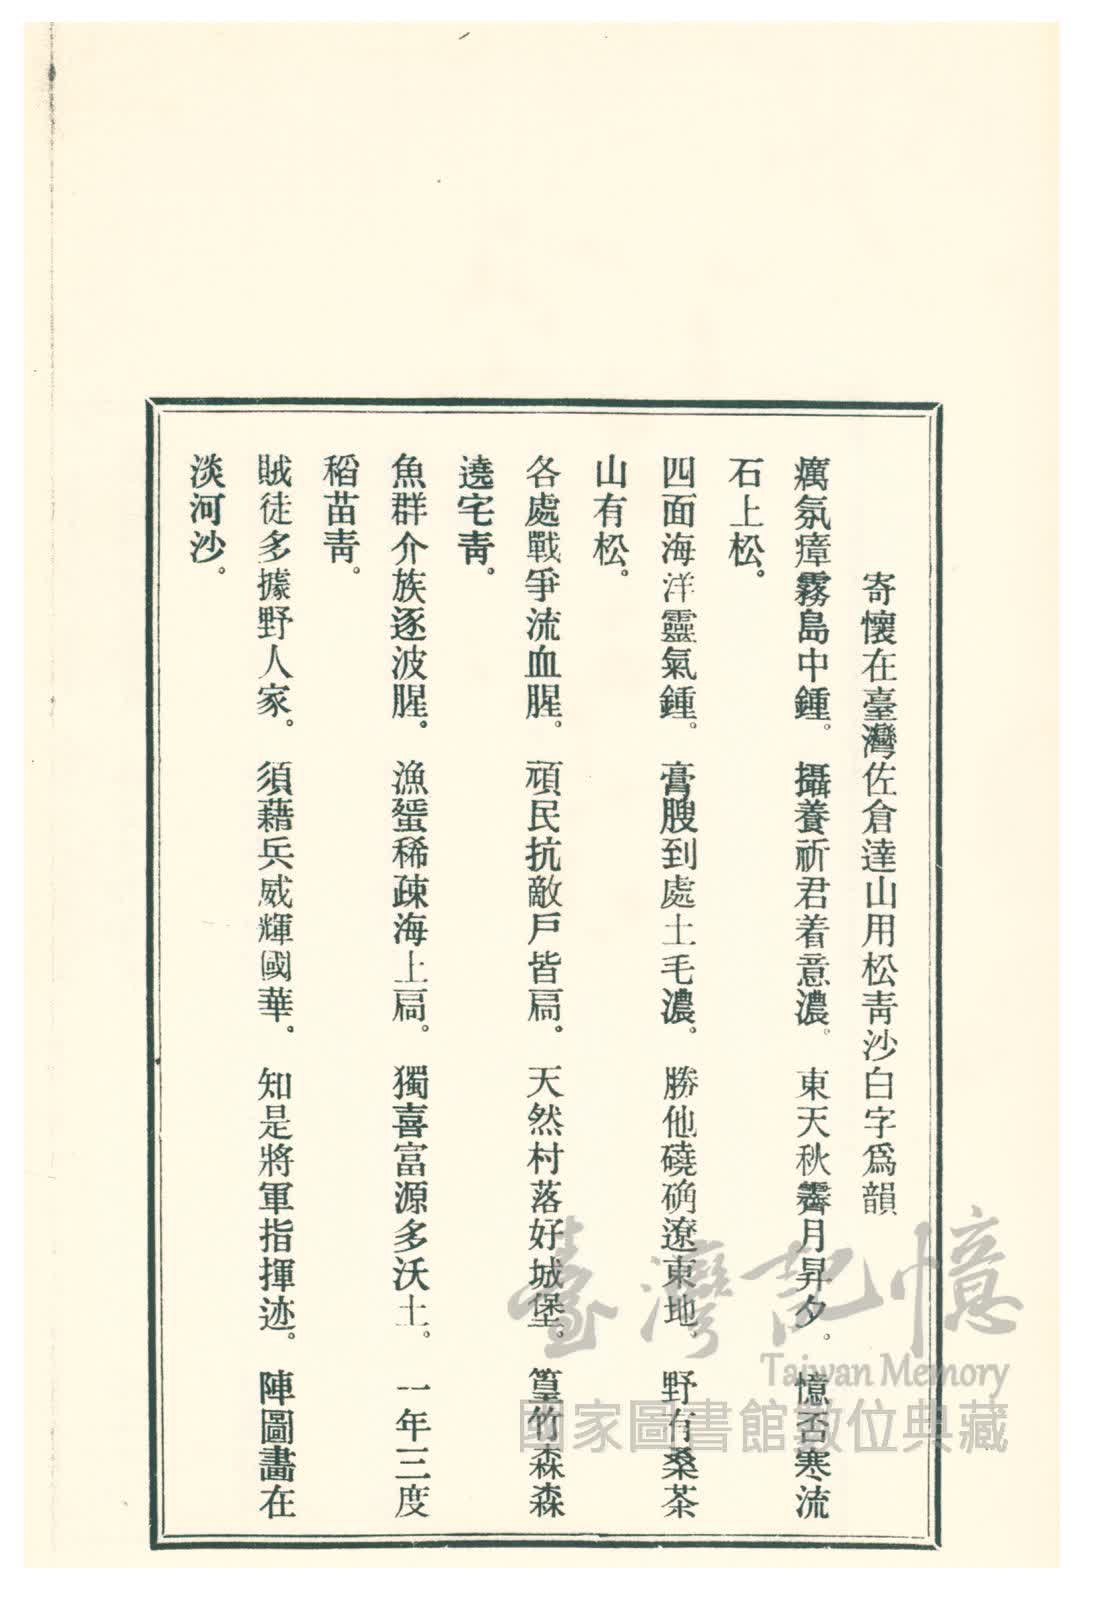 寄懷在臺灣佐倉達山用松靑沙白字爲韻
癘氛瘴霧島中鍾。攝養祈君着意濃。東天秋霽月昇夕。憶否寒流
石上松。
四面海洋靈氣鍾。膏腴到處土毛濃。勝他磽确遼東地。野有桑茶
山有松。
各處戰爭流血腥。頑民抗敵戶皆扃。天然村落好城堡。篁竹森森
遶宅靑。
魚群介族逐波腥。漁蜑稀疎海上扃。獨喜富源多沃土。一年三度
稻苗靑。
賊徒多據野人家。須藉兵威輝國華。知是將軍指揮迹。陣圖畵在
淡河沙。
臺灣記憶
Taiwan Memory
國家圖書館數位典藏